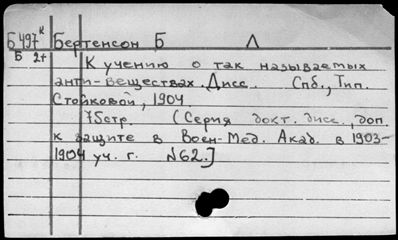 Б497к Бертенсон Б Л
Б 2+ К учению о так называемых
анти-веществах. Дисс. Спб., Тип.
Стойковой, 1904.
75стр. (Серия докт. дисс., доп.
к защите в Воен-Мед. Акад. в 1903-
1904 уч. г. №62.]